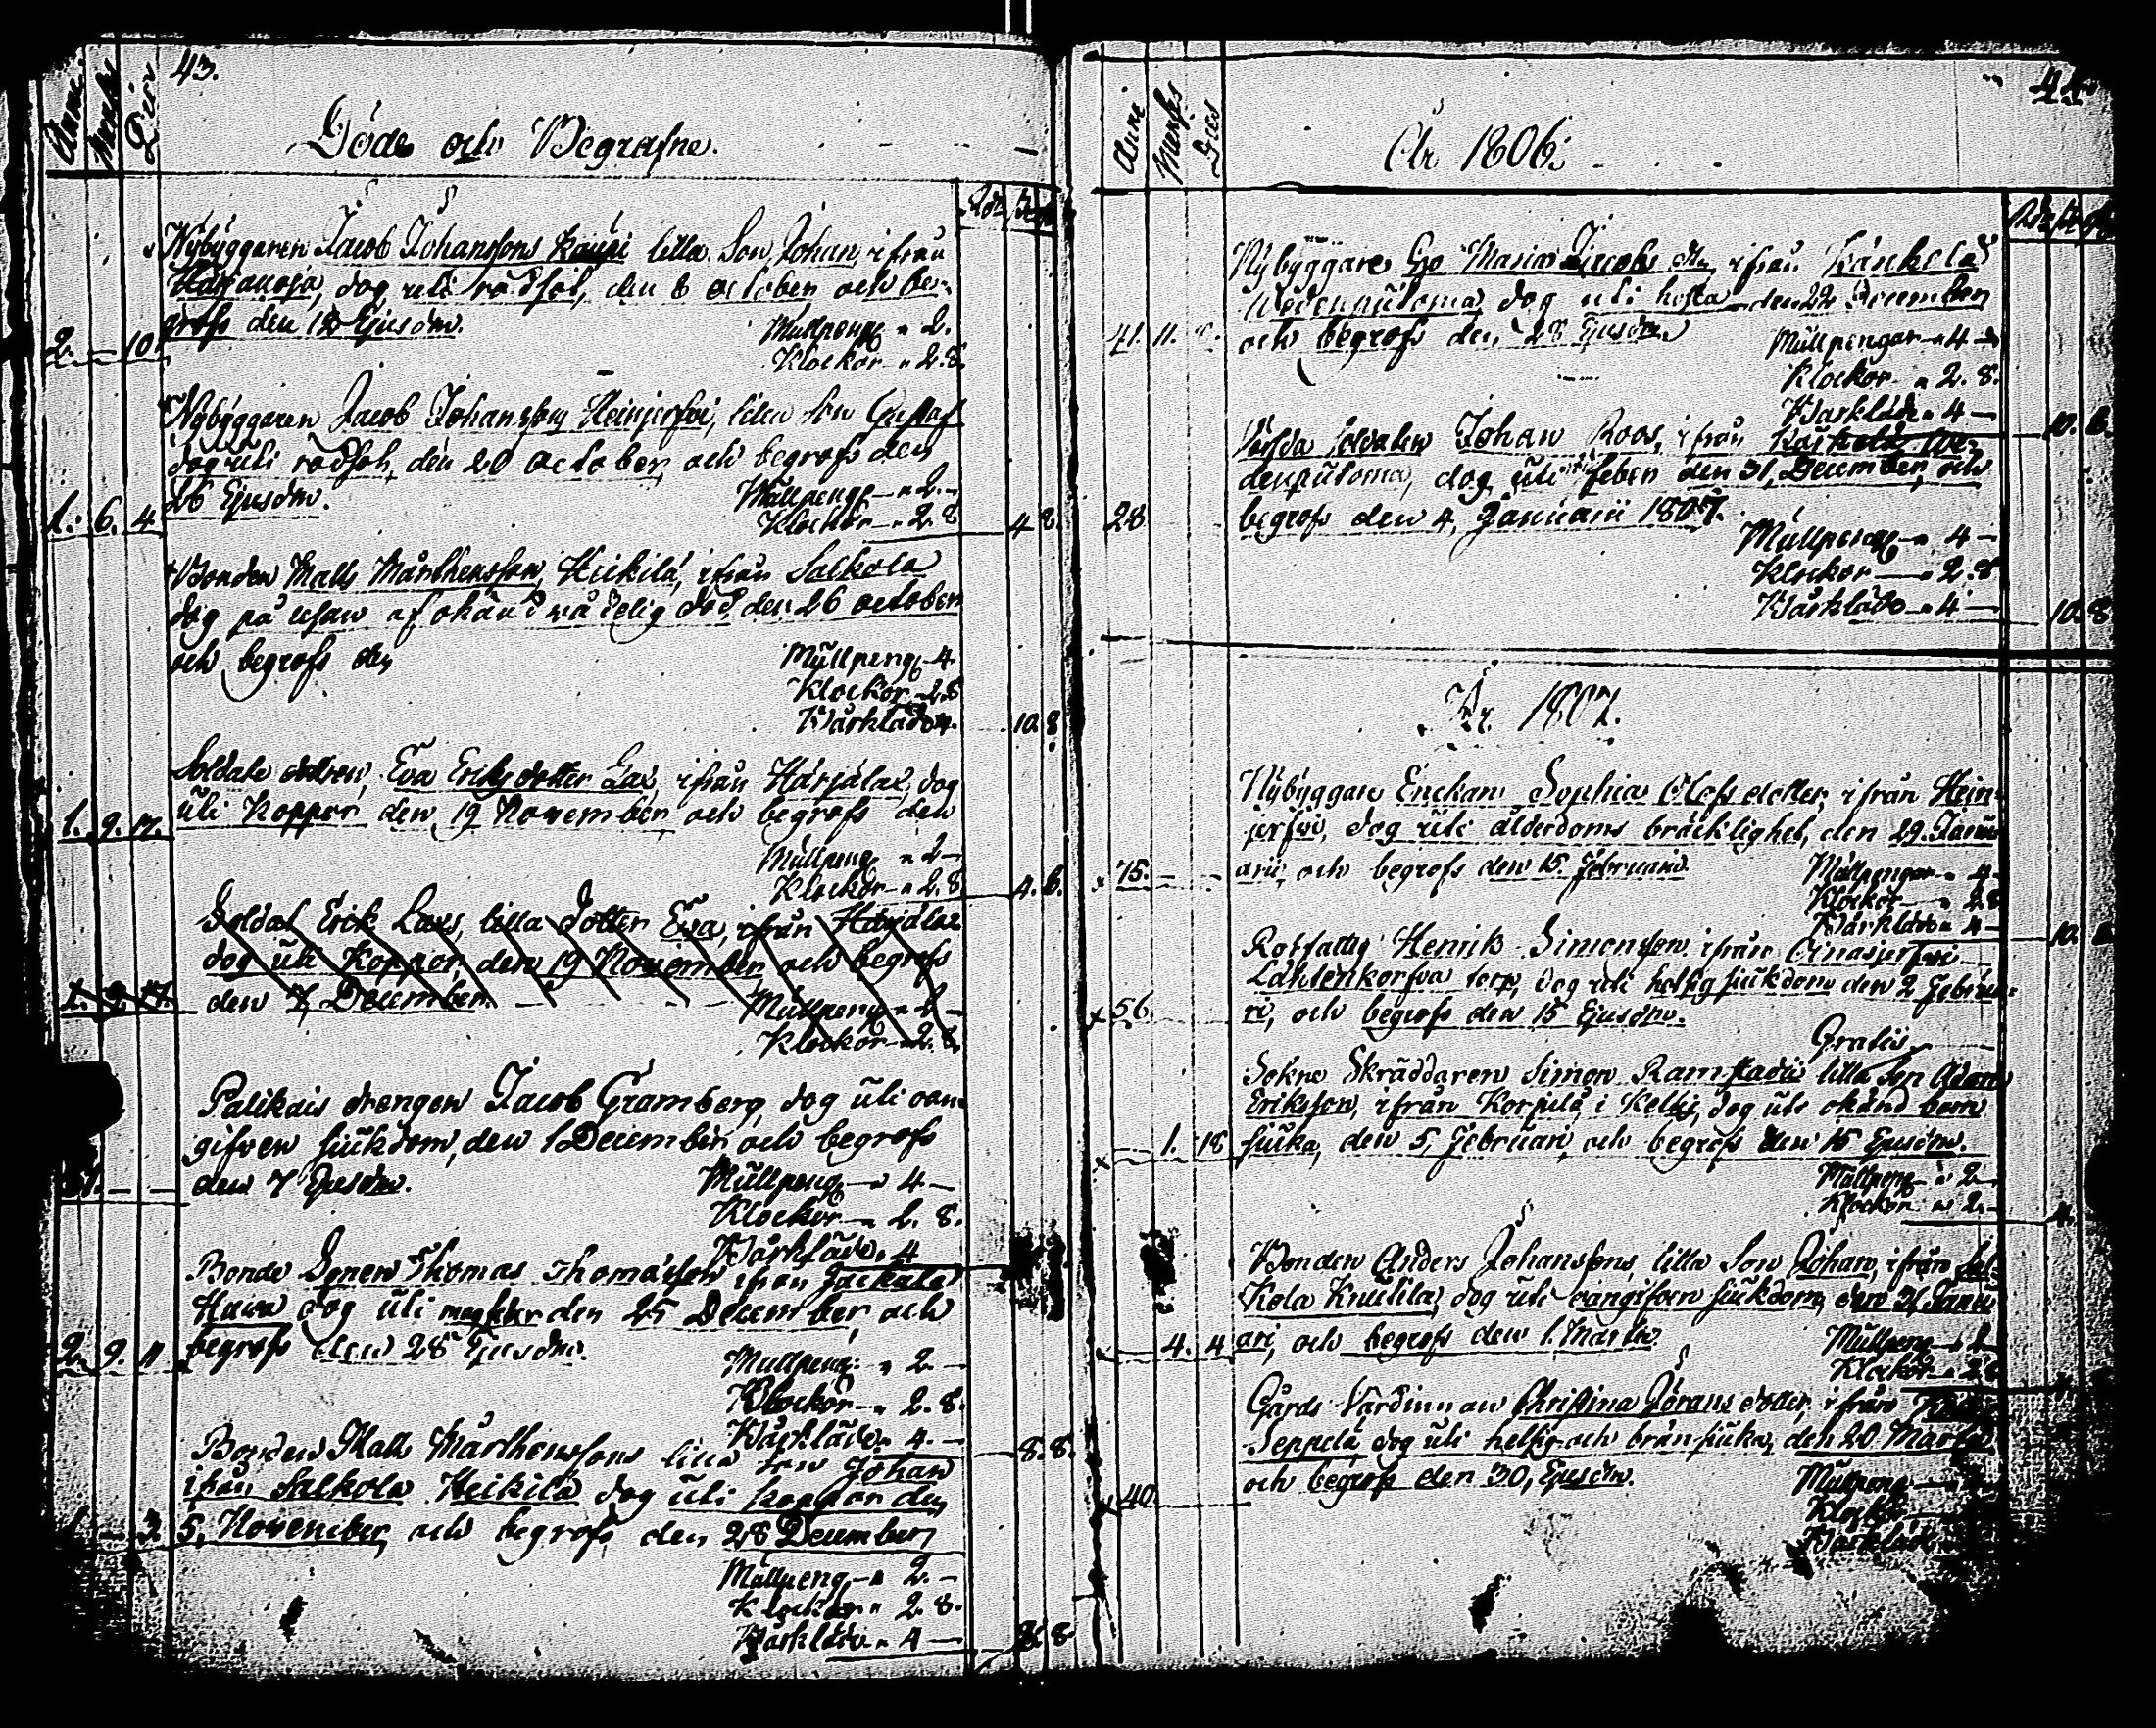 43.
Anni Mens Dies
Döde och Begrafne.
Rdr
Nybyggaren Jacob Johanssons Kauppi lilla Son, Johan, ifrån
dog uti rödsot, den 8 october och be-
grofs den Ejusdm.
2. — 10.
Mullpeng " 2.
Klockor " 2.8.
Nybyggaren Jacob Johanssons Heinjerfvi, lilla Son Gustaf
dog uti rödsot, den 20 october, och begrofs den
26 Ejusdm.
1. 6. 4
Mullpeng — " 2.-
Klockor — " 2.8
4 8.
Bonden Matts Mårthensson, Heikilä, ifrån Salkola
dog på resan af okänd död, den 26 october
och begrofs den
Mullpeng - 4
Klockor - 2.8
Bårkläde 4.
10. 8
Soldate dottren, Eva Ericsdotter Lax, ifrån Härjälax, dog
uti Koppor den 19 November och begrofs den
1. 9. 17.
Mullpeng " 2 —
Klockor - " 2.8
4. 8.
Soldat Erik Laxs, lilla Dotter Eva, ifrån Härjälax
dog uti Koppor, den 19 November och begrofs
den 7 December.
1. 9. 17.
Mullpeng " 2 —
Klockor — " 2.8.
drengen Jacob Gramberg, dog uti oan-
gifven siukdom, den 1 December, och begrofs
den 7 Ejusdm.
Mullpeng — " 4 —
Klockor — " 2. 8.
Bårkläde " 4
Bonde Sonen Thomas Thomasson ifrån
dog uti den 25 December, och
begrofs den 28 Ejusdm.
2. 9. 11
Mullpeng: " 2. —
Klockor — " 2. 8.
Bårkläde " 4. —
8. 8.
Bonden Matts Mårthenssons lilla Son Johan
ifrån Salkola Heikilä dog uti koppor den
5, November, och begrofs den 28 December
— 3
Mullpeng — " 2. —
Klockor " 2. 8.
Bårkläde " 4 —
8. 8
44
Anni Mens. Dies
År 1806.
Nybyggare Maria Jacobs dr, ifrån Känkelä
dog uti den 22 December
och begrofs den 28 Ejusdm.
41. 11.
Mullpengar — " 4 —
Klockor — " 2. 8.
Bårkläde " 4 —
10. 8.
Soldaten Johan Roos, ifrån
dog uti feber den 31, December, och
begrofs den 4, Januarii 1807.
28
Mullpeng — " 4 —
Klockor — " 2.8
Bårkläde — " 4 —
10. 8
År 1807.
Nybyggare Enckan Sophia Olofs dotter, ifrån Hein-
jerfvi, dog uti ålderdoms bräcklighet, den 29. Janu-
arii, och begrofs den 15 Februarii.
75. — —
Mullpengar " 4 —
Klockor — " 2.8
Bårkläde " 4 —
10.
Rotfattig Henrik Simonsson ifrån
Lahtenkorfva torp, dog uti hetsig siukdom den 2 Februa-
ri, och begrofs den 15 Ejusdm.
56.
Gratis
Sokne Skräddaren Simon Ramstadii lilla Son Adam
Eriksson, ifrån Korpilä i dog uti okänd barn
siuka, den 5, Februari, och begrofs den 15 Ejusdm.
1. 18
Mullpeng — " 2 —
Klockor " 2. —
4.
Bonden Anders Johanssons, lilla Son Johan, ifrån Sal-
kola Knutila, dog uti oangifven siukdom, den 31 Janu
ari, och begrofs den 1. Martii.
4. 4
Mullpeng — " 2
Klockor — " 2
Gårds Värdinnan Christina Jörans dotter, ifrån
Seppelä, dog uti hetsig och brän siuka, den 20 Martii
och begrofs den 30, Ejusdm.
40.
Mullpeng —
Klockor
Bårkläde